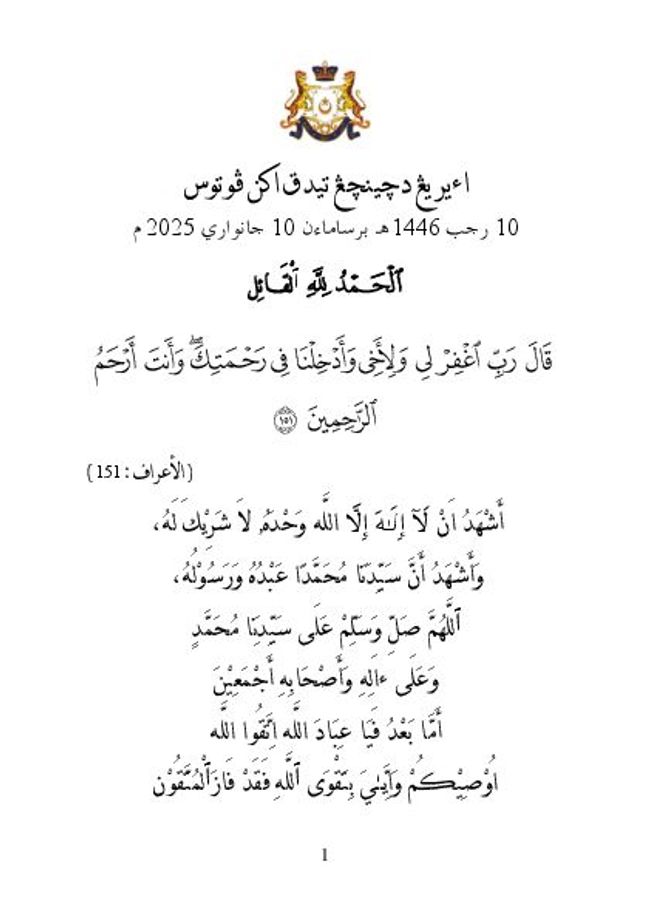 اءيريڠ دچينچڠ تيدق اكن ڤوتوس
10 رجب 1446هـ برساماءن 10 جانواري 2025 م
ٱلْحَمْدُ لِلَّهِ ٱلْقَائِلِ
قَالَ رَبِّ ٱغْفِرْ لِي وَلِأَخِي وَأَدْخِلْنَا فِي رَحْمَتِكَ ۖ وَأَنتَ أَرْحَمُ
ٱلرَّٰحِمِينَ ۝١٥١
(الأعراف: 151)
أَشْهَدُ اَنْ لَآ إِلَـٰهَ إِلَّا اللَّه وَحْدَهُۥ لاَ شَرِيْكَ لَهُ،
وَأَشْهَدُ أَنَّ سَيِّدَنَا مُحَمَّدًا عَبْدُهُ وَرَسُوْلُهُ،
اَللَّهُمَّ صَلِّ وَسَلِّمْ عَلَى سَيِّدِنَا مُحَمَّدٍ
وَعَلَى ءالِهِ وَأَصْحَابِهِ أَجْمَعِيْنَ
أَمَّا بَعْدُ فَيَا عِبَادَ اللَّه اِتَّقُوا اللَّه
اُوْصِيْكُمْ وَإِيَّـٰيَ بِتَقْوَى ٱللَّهِ فَقَدْ فَازَٱلْمُتَّقُوْن
1